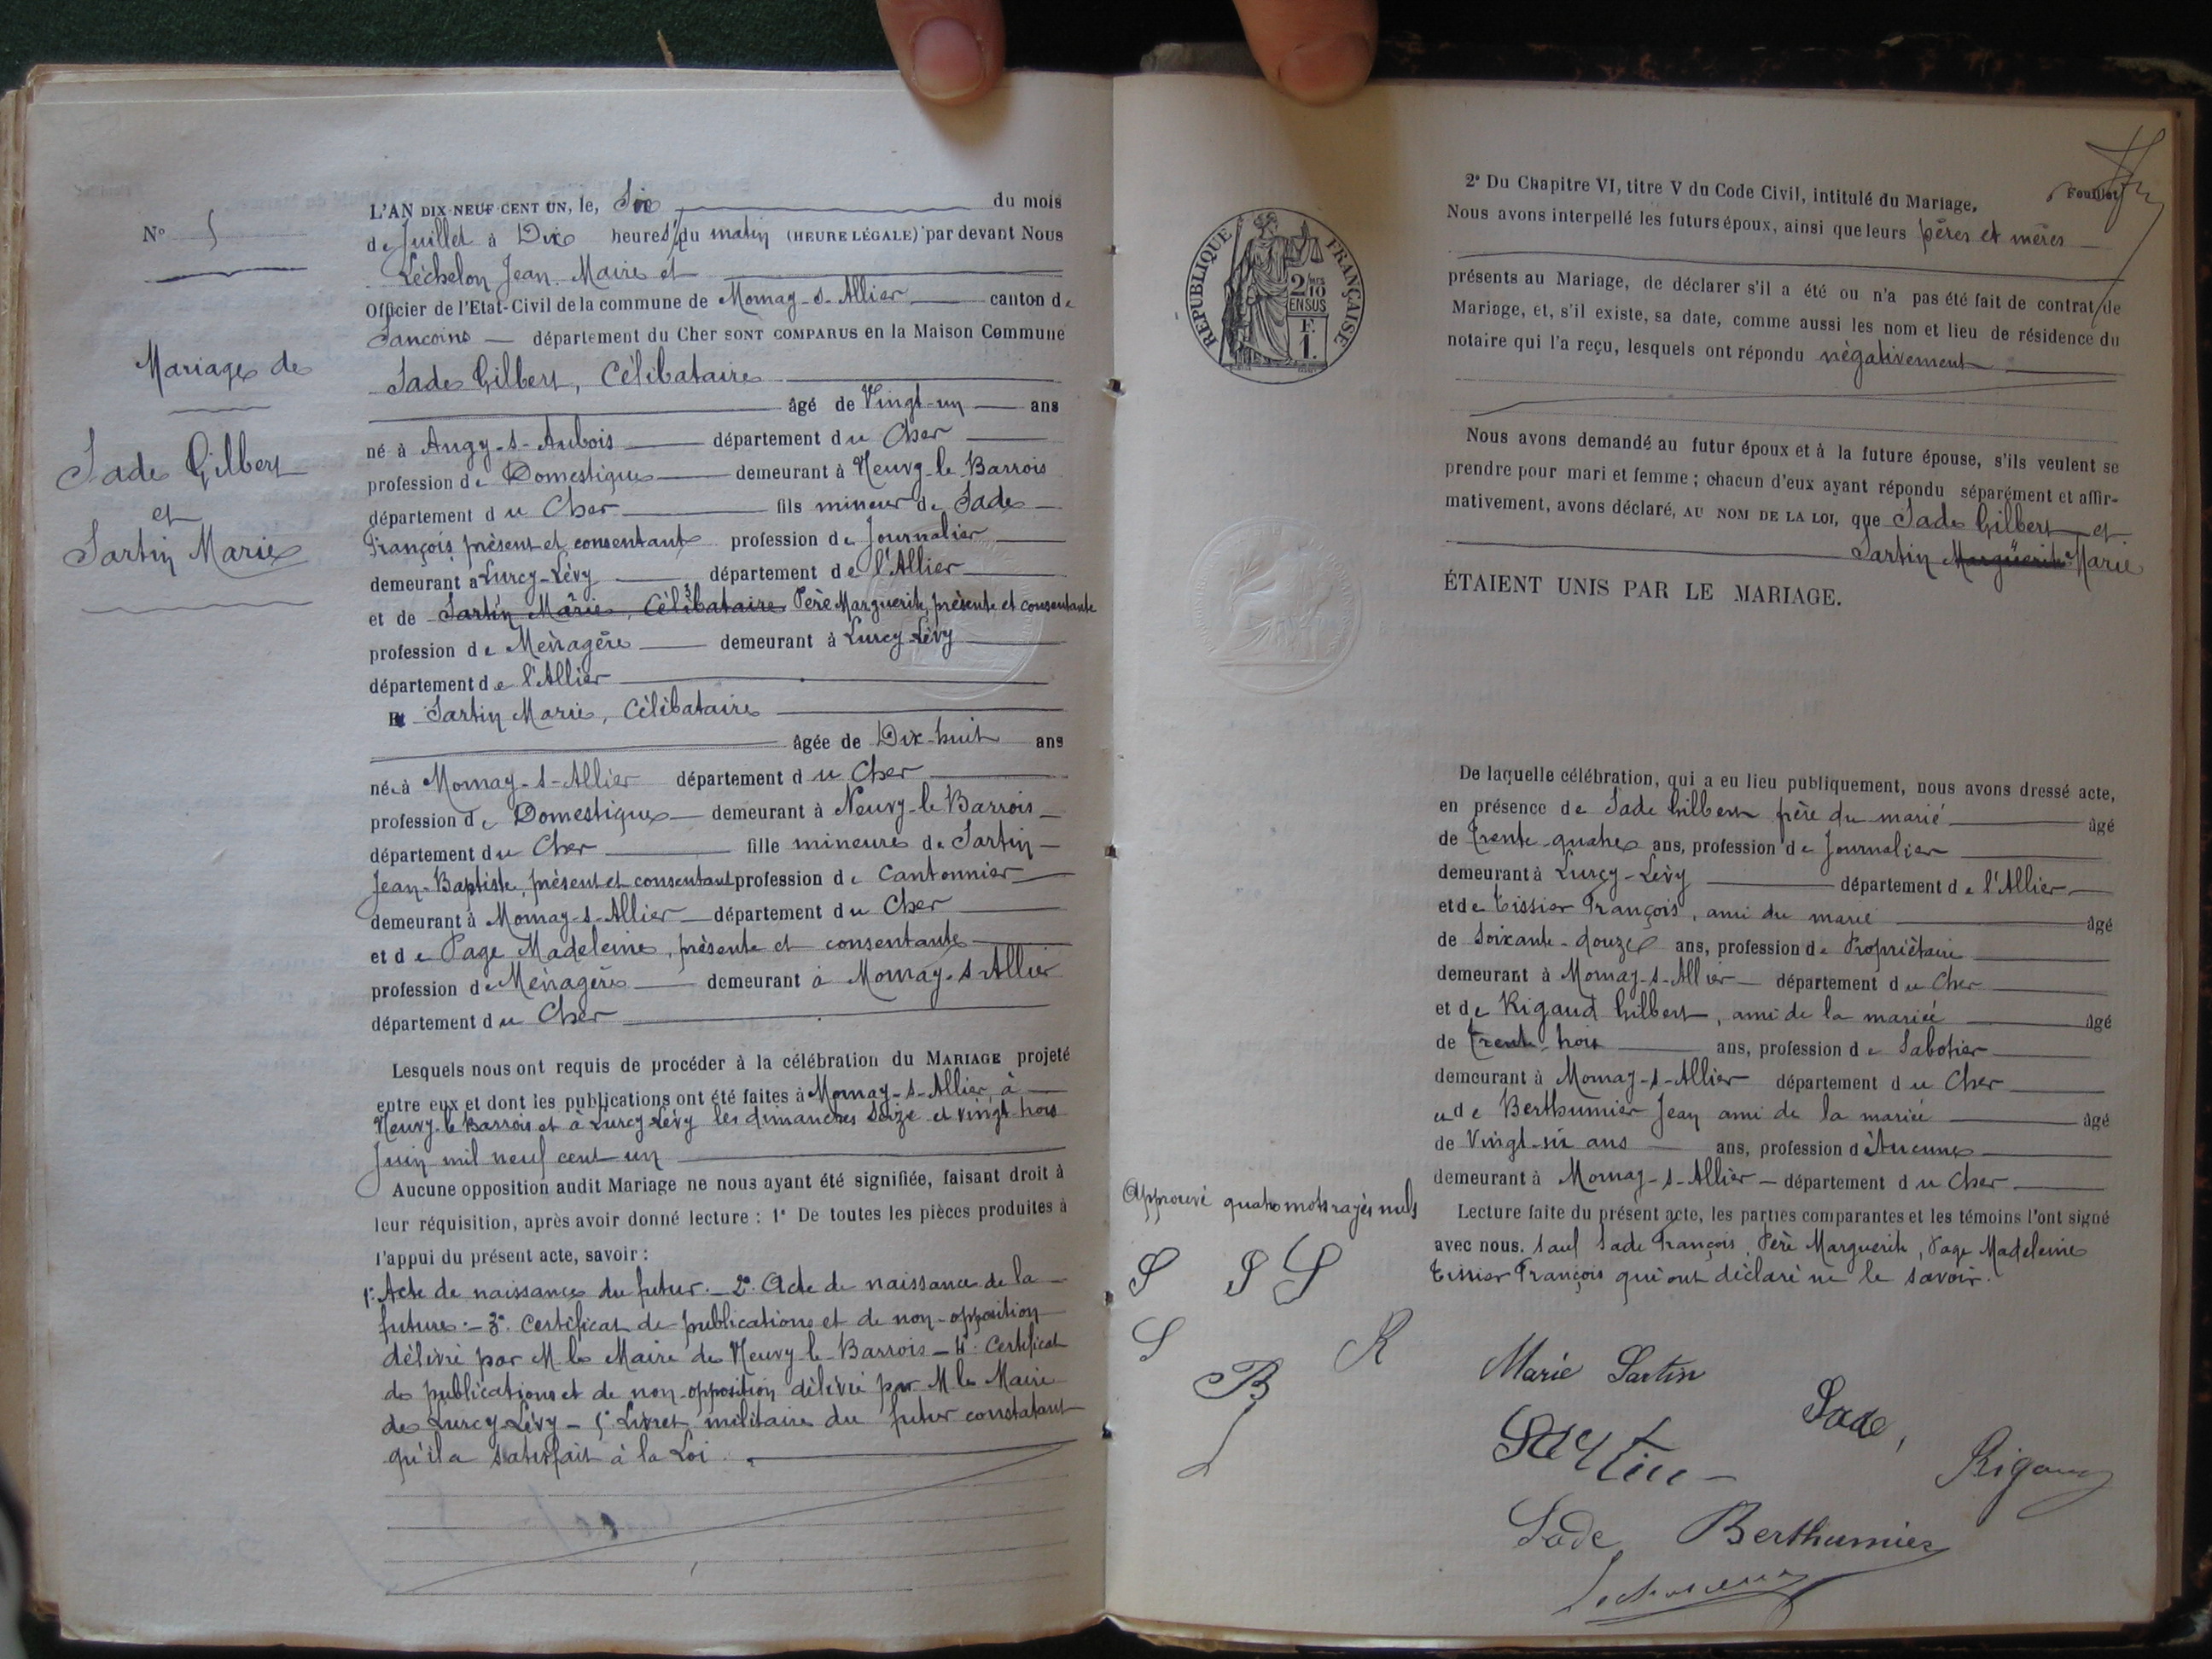 N° 5
Mariage de
Sade Gilbert
et
Sartin Marie
L'AN DIX-NEUF CENT UN, le, Six du mois
de Juillet à Dix heures du matin (HEURE LÉGALE) par devant Nous
Léchelon Jean Maire et
Officier de l'Etat-Civil de la commune de Mornay-s-Allier canton de
Sancoins département du Cher SONT COMPARUS en la Maison Commune
Sade Gilbert, Célibataire
âgé de Vingt-un ans
né à Augy-s-Aubois département du Cher
profession de Domestique demeurant à Neuvy-le-Barrois
département du Cher fils mineur de Sade
François, présent et consentant profession de Journalier
demeurant à Lurcy-Lévy département de l'Allier
et de Sartin Marie, Célibataire Père Marguerite, présente et consentante
profession de Ménagère demeurant à Lurcy-Lévy
département de l'Allier
Et Sartin Marie, Célibataire
âgée de Dix-huit ans
née à Mornay-s-Allier département du Cher
profession de Domestique demeurant à Neuvy-le-Barrois
département du Cher fille mineure de Sartin
Jean-Baptiste, présent et consentant profession de Cantonnier
demeurant à Mornay-s-Allier département du Cher
et de Page Madeleine, présente et consentante
profession de Ménagère demeurant à Mornay-s-Allier
département du Cher
Lesquels nous ont requis de procéder à la célébration du MARIAGE projeté
entre eux et dont les publications ont été faites à Mornay-s-Allier, à
Neuvy-le-Barrois et à Lurcy-Lévy les dimanches seize et vingt-trois
Juin mil neuf cent un
Aucune opposition audit Mariage ne nous ayant été signifiée, faisant droit à
leur réquisition, après avoir donné lecture : 1° De toutes les pièces produites à
l'appui du présent acte, savoir :
1° Acte de naissance du futur. - 2° Acte de naissance de la
future. - 3° Certificat de publications et de non-opposition
délivré par M. le Maire de Neuvy-le-Barrois - 4° Certificat
de publications et de non-opposition délivré par M. le Maire
de Lurcy-Lévy - 5° Livret militaire du futur constatant
qu'il a satisfait à la Loi.
REPUBLIQUE FRANÇAISE
2/10
EN SUS
F.
1.
Feuillet
2° Du Chapitre VI, titre V du Code Civil, intitulé du Mariage.
Nous avons interpellé les futurs époux, ainsi que leurs pères et mères
présents au Mariage, de déclarer s'il a été ou n'a pas été fait de contrat de
Mariage, et, s'il existe, sa date, comme aussi les nom et lieu de résidence du
notaire qui l'a reçu, lesquels ont répondu négativement
Nous avons demandé au futur époux et à la future épouse, s'ils veulent se
prendre pour mari et femme ; chacun d'eux ayant répondu séparément et affir-
mativement, avons déclaré, AU NOM DE LA LOI, que Sade Gilbert et
Sartin Marguerite Marie
ÉTAIENT UNIS PAR LE MARIAGE.
De laquelle célébration, qui a eu lieu publiquement, nous avons dressé acte,
en présence de Sade Gilbert frère du marié âgé
de Trente-quatre ans, profession de Journalier
demeurant à Lurcy-Lévy département de l'Allier
et de Tissier François, ami du marié âgé
de Soixante-douze ans, profession de Propriétaire
demeurant à Mornay-s-Allier département du Cher
et de Rigaud Gilbert, ami de la mariée âgé
de Trente-trois ans, profession de Sabotier
demeurant à Mornay-s-Allier département du Cher
et de Berthumier Jean ami de la mariée âgé
de Vingt-six ans ans, profession d'Aucune
demeurant à Mornay-s-Allier département du Cher
Lecture faite du présent acte, les parties comparantes et les témoins l'ont signé
avec nous. Sauf Sade François, Père Marguerite, Page Madeleine
Tissier François qui ont déclaré ne le savoir.
Approuvé quatre mots rayés nuls
S S S
S R
B
L
Marie Sartin
Sade
Sartin
Rigaud
Sade Berthumier